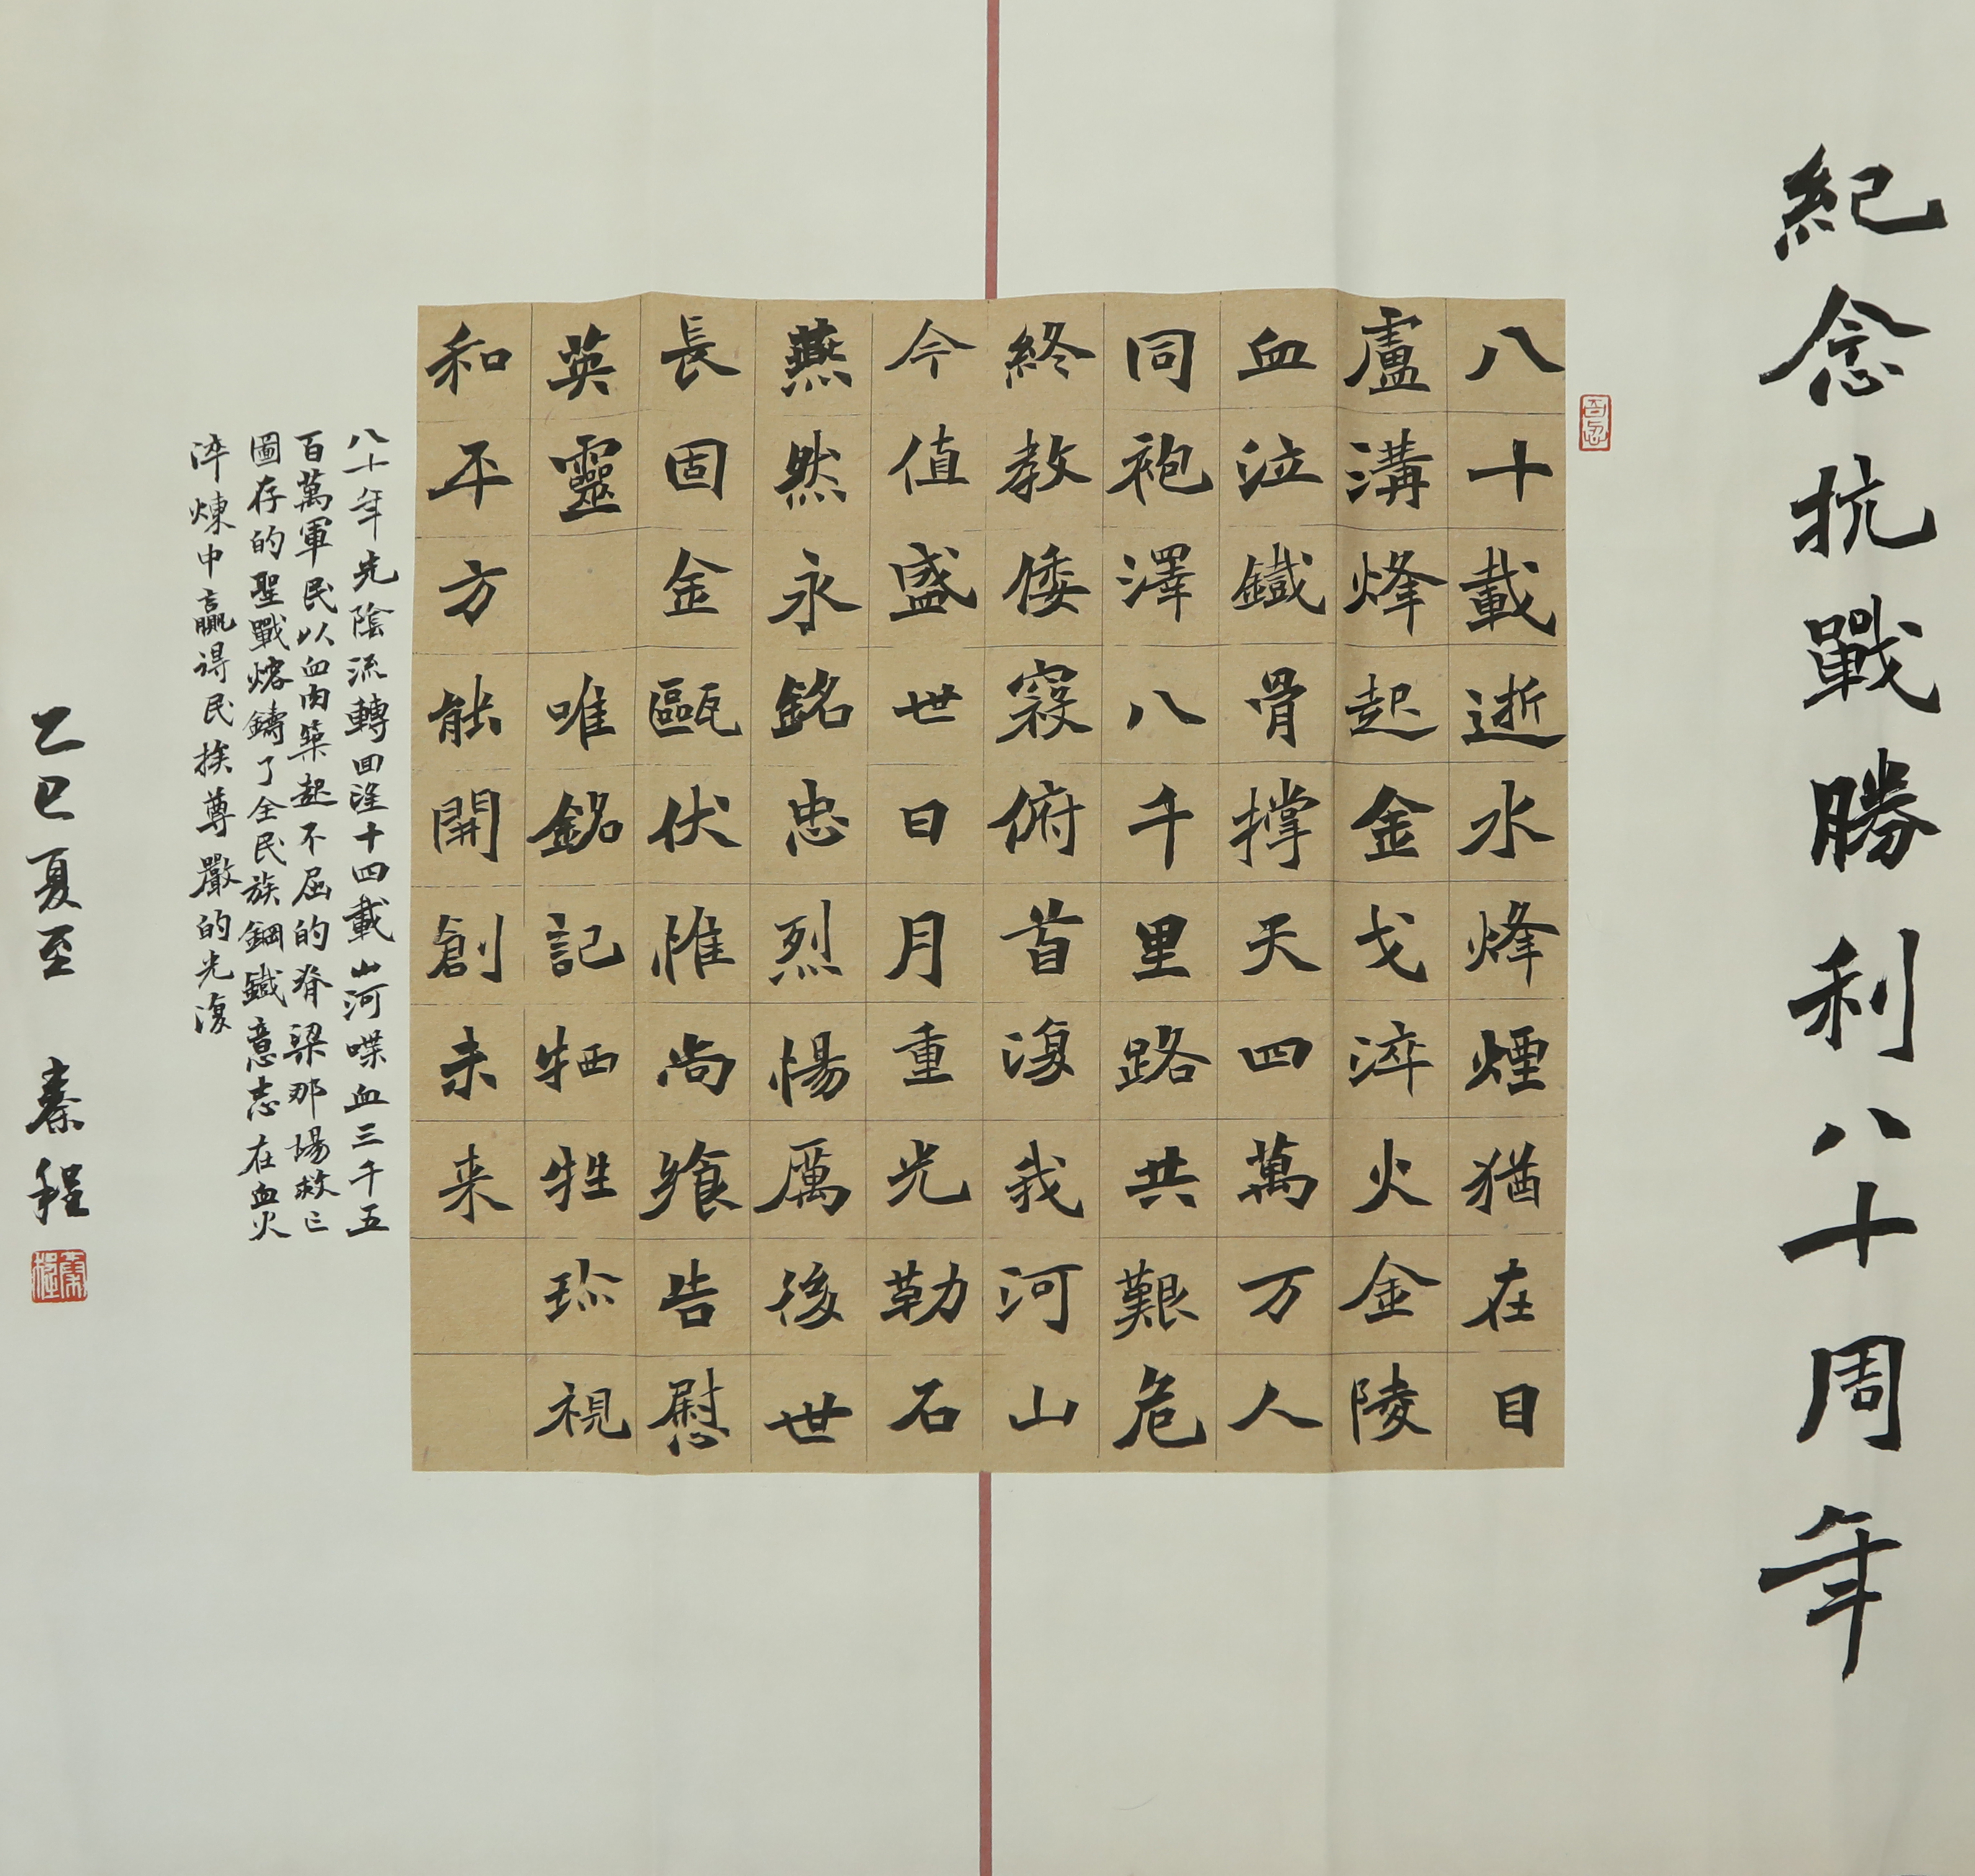 紀念抗戰勝利八十周年
八十載逝水烽煙猶在目
盧溝烽起金戈淬火金陵
血泣鐵骨撐天四萬万人
同袍澤八千里路共艱危
終教倭寇俯首復我河山
今值盛世日月重光勒石
燕然永銘忠烈惕厲後世
長固金甌伏惟尚饗告慰
英靈 唯銘記牺牲珎視
和平方能開創未来
八十年光陰流轉回望十四載山河喋血三千五
百萬軍民以血肉築起不屈的脊梁那場救亡
圖存的聖戰熔鑄了全民族鋼鐵意志在血火
淬煉中贏得民族尊嚴的光復
乙巳夏至 秦程
秦程